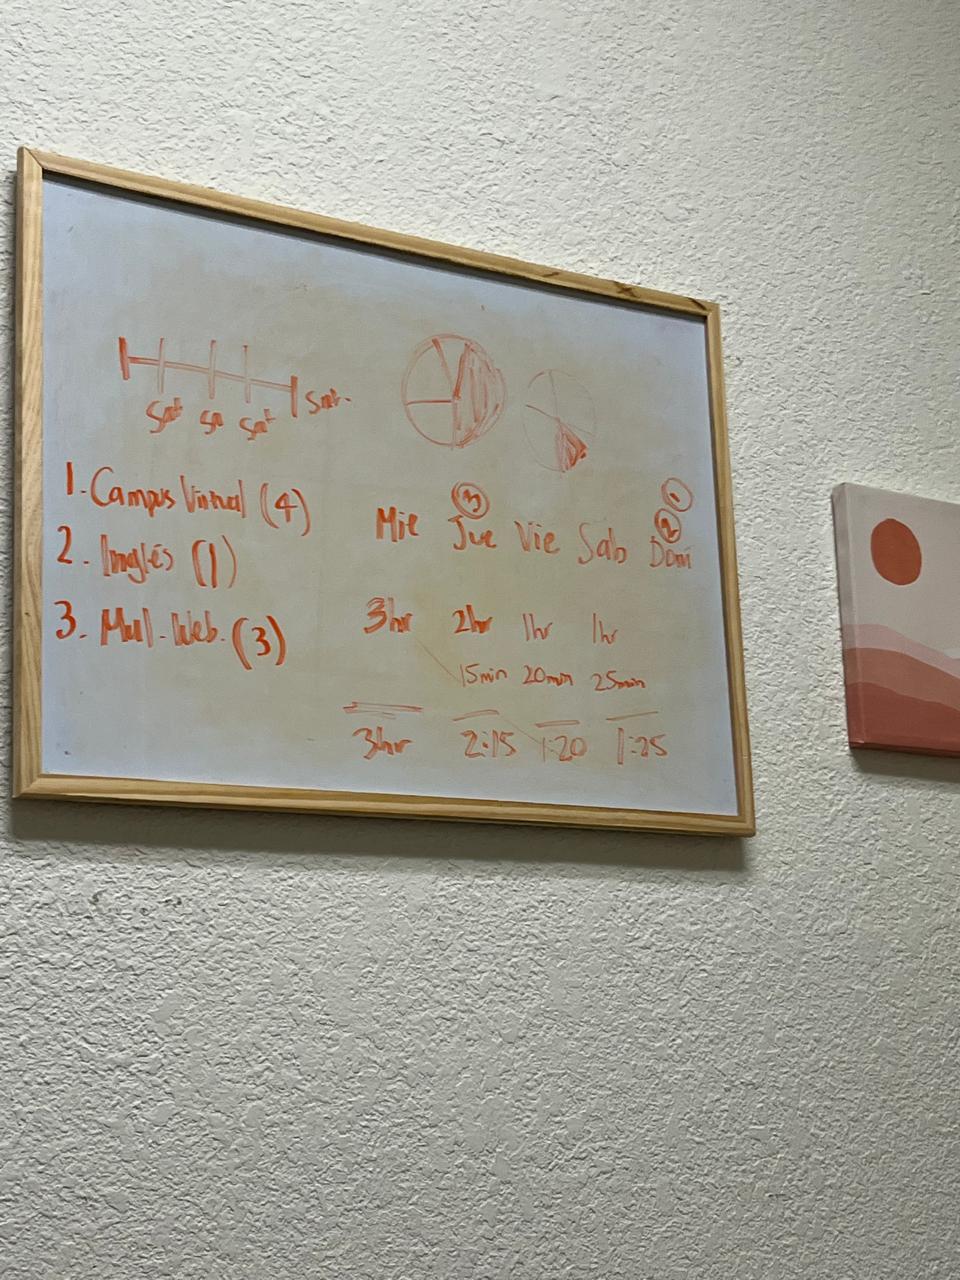 Sat Sa Sat Sat.
1. Campus Virtual (4)
2. Inglés (1)
3. Mul. Web. (3)
3 1
2
Mie Jue Vie Sab Dom
3hr 2hr 1hr 1hr
15min 20min 25min
3hr 2:15 1:20 1:25